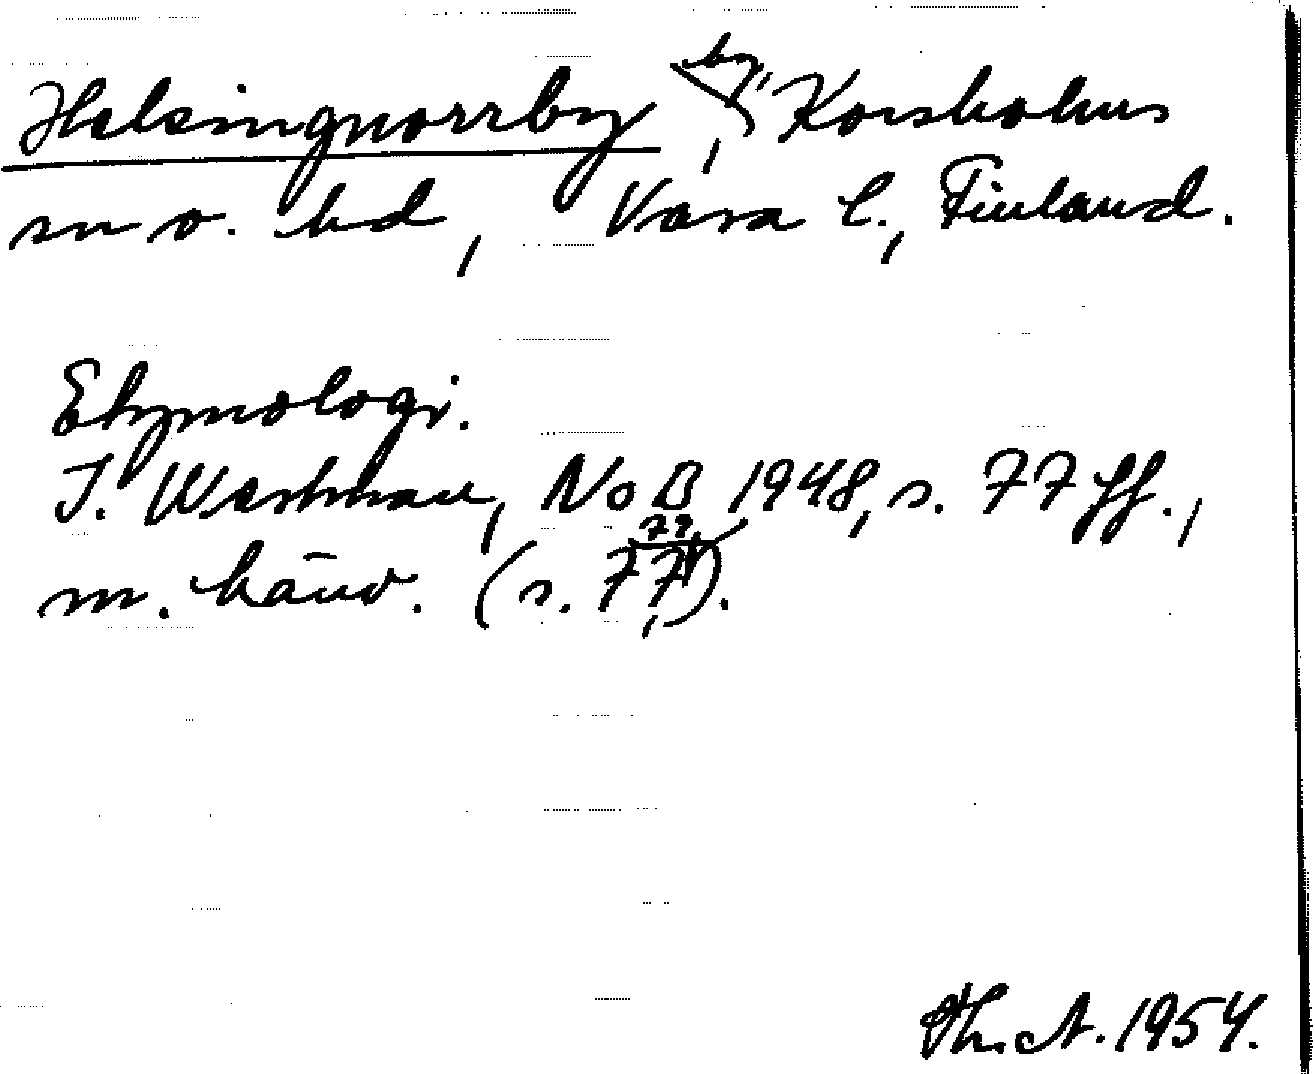 Helsingnorrby by, Korsholms
sn o. hd, Vasa l., Finland.
Etymologi.
I. Westman, NoB 1948, s. 77 ff.,
m. hänv. (s. 77, 79).
Th. A. 1954.